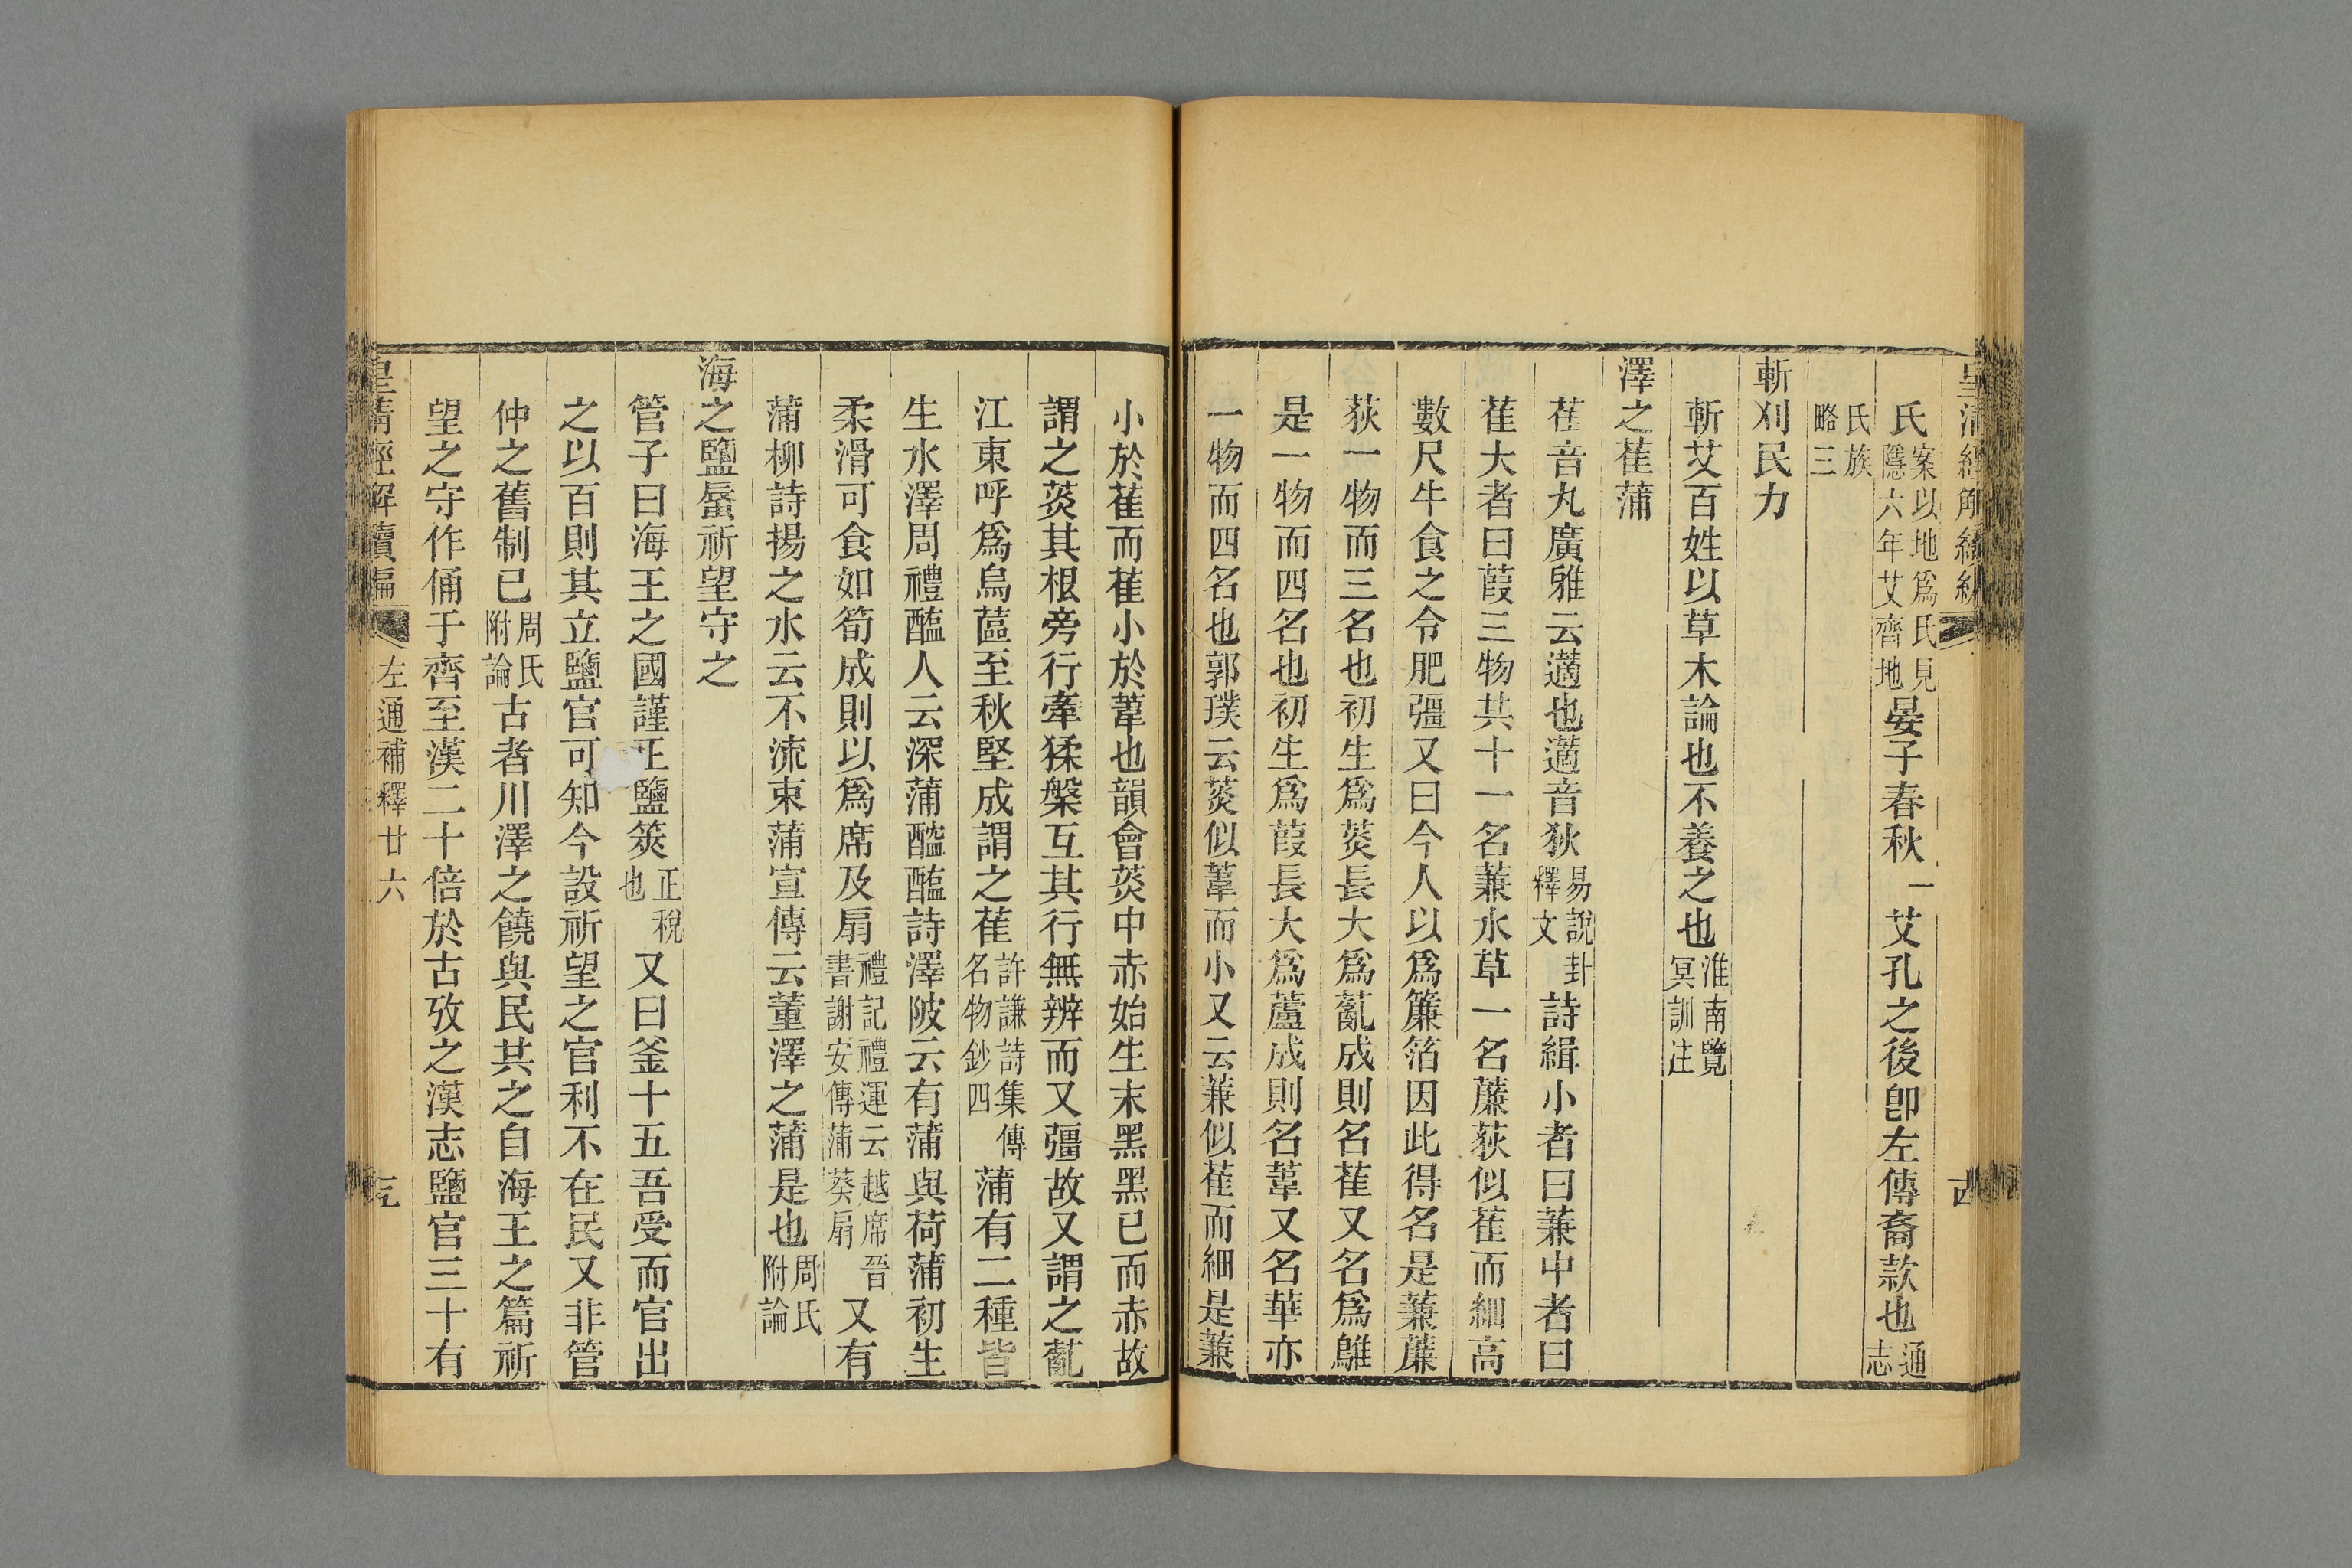 皇清經解續編
氏案以地爲氏見隱六年艾齊地晏子春秋一艾孔之後卽左傳裔款也通志
氏族略三
斬刈民力
斬艾百姓以草木論也不養之也淮南覽冥訓注
澤之萑蒲
萑音丸廣雅云藡也藡音狄易說卦釋文詩緝小者曰蒹中者曰
萑大者曰葭三物共十一名蒹水草一名薕荻似萑而細高
數尺牛食之令肥彊又曰今人以爲簾箔因此得名是蒹薕
荻一物而三名也初生爲菼長大爲薍成則名萑又名爲鵻
是一物而四名也初生爲葭長大爲蘆成則名葦又名華亦
一物而四名也郭璞云菼似葦而小又云蒹似萑而細是蒹
小於萑而萑小於葦也韻會菼中赤始生末黑黑已而赤故
謂之菼其根旁行牽揉槃互其行無辨而又彊故又謂之薍
江東呼爲烏蓲至秋堅成謂之萑許謙詩集傳名物鈔四蒲有二種皆
生水澤周禮醢人云深蒲醓醢詩澤陂云有蒲與荷蒲初生
柔滑可食如筍成則以爲席及扇禮記禮運云越席晉書謝安傳蒲葵扇又有
蒲柳詩揚之水云不流束蒲宣傳云董澤之蒲是也周氏附論
海之鹽蜃祈望守之
管子曰海王之國謹正鹽筴正稅也又曰釜十五吾受而官出
之以百則其立鹽官可知今設祈望之官利不在民又非管
仲之舊制已周氏附論古者川澤之饒與民共之自海王之篇祈
望之守作俑于齊至漢二十倍於古攷之漢志鹽官三十有
皇清經解續編 左通補釋廿六